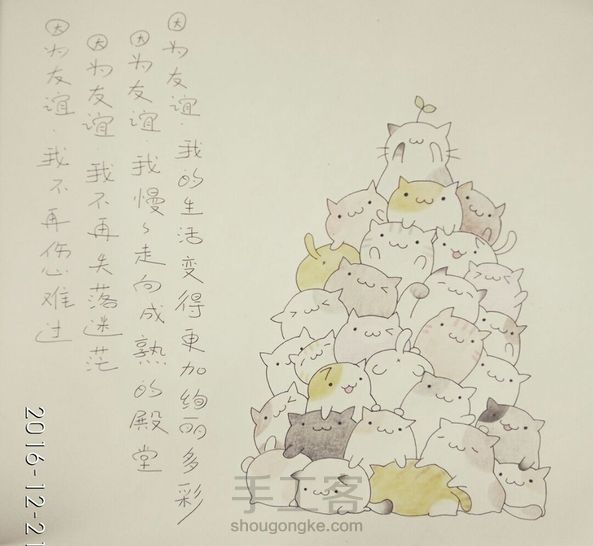 因为友谊.我的生活变得更加绚丽多彩
因为友谊.我慢々走向成熟的殿堂
因为友谊.我不再失落迷茫
因为友谊.我不再伤心难过
2016-12-21
手工客
shougongke.com